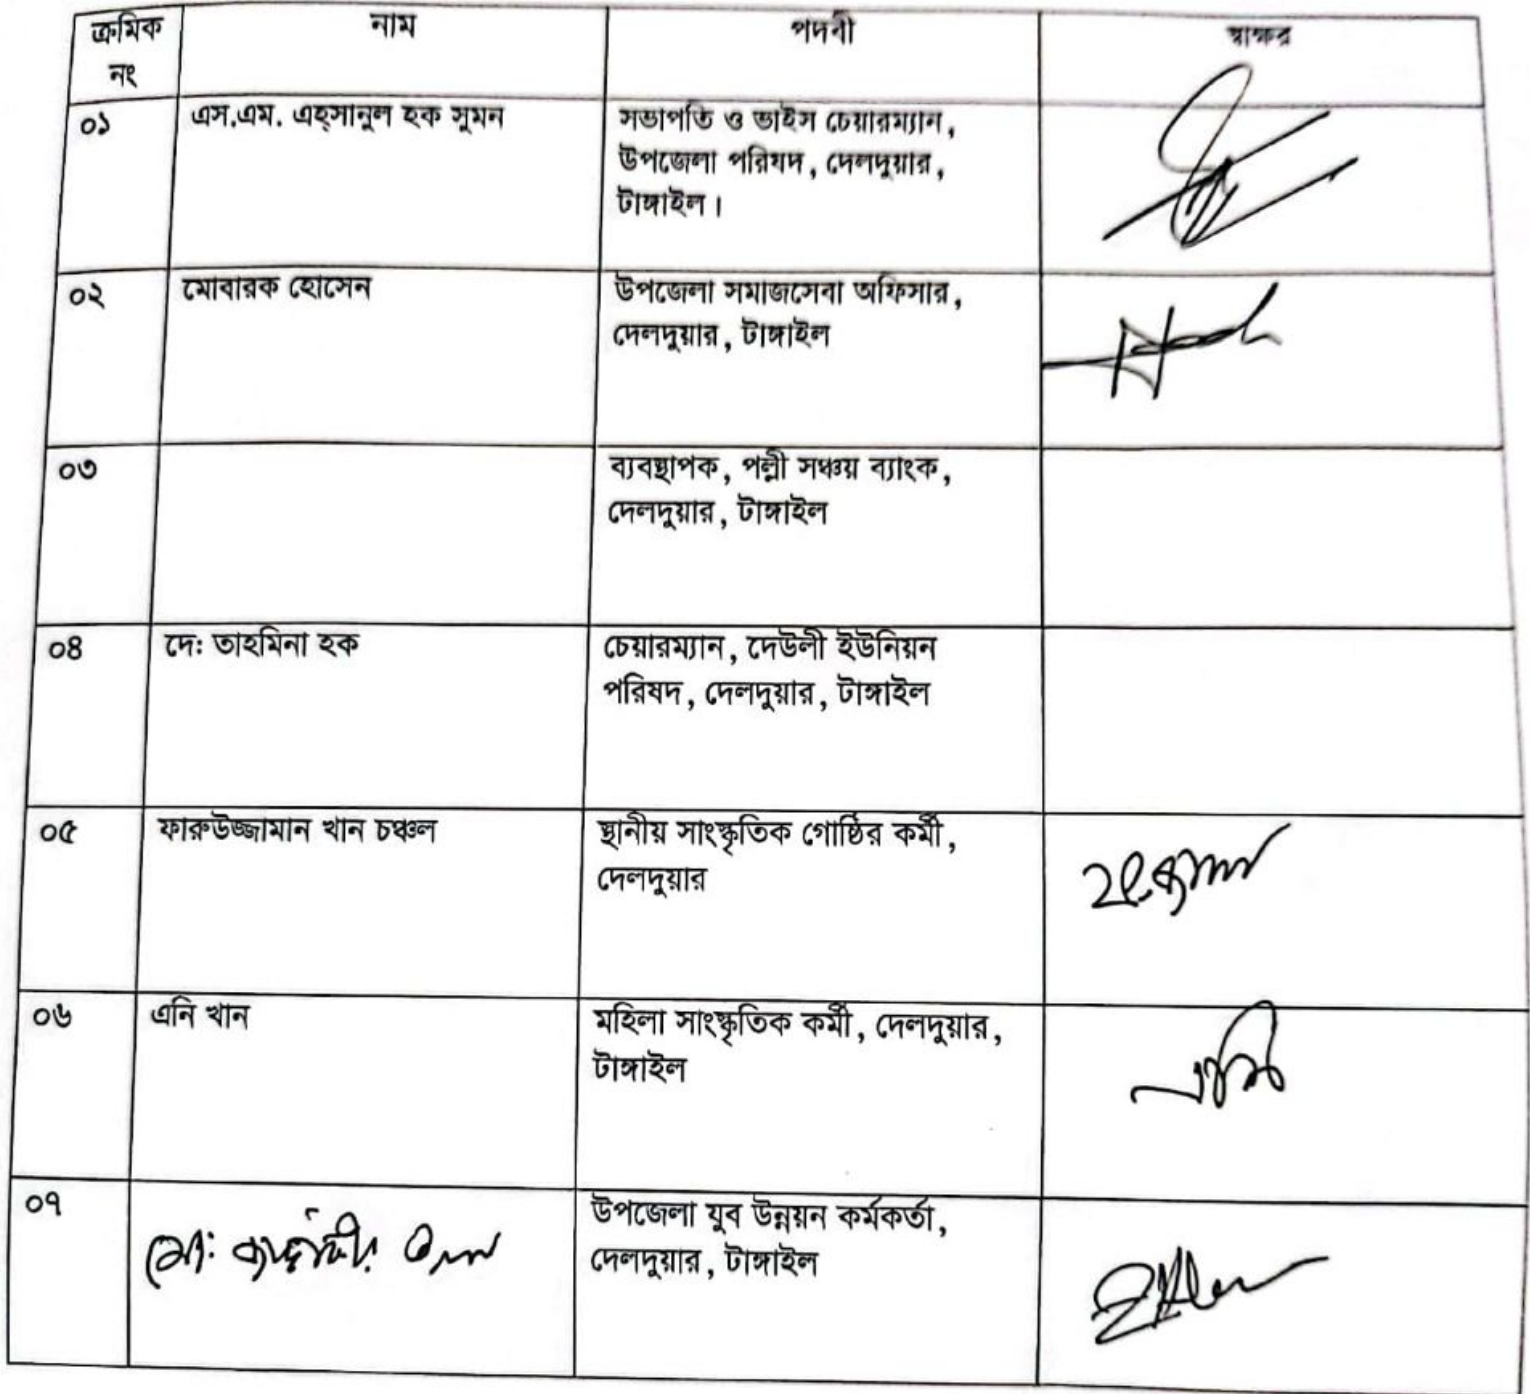 ক্রমিক নং নাম পদবী স্বাক্ষর
০১ এস.এম. এহ্সানুল হক সুমন সভাপতি ও ভাইস চেয়ারম্যান,
উপজেলা পরিষদ, দেলদুয়ার,
টাঙ্গাইল।
০২ মোবারক হোসেন উপজেলা সমাজসেবা অফিসার,
দেলদুয়ার, টাঙ্গাইল
০৩ ব্যবস্থাপক, পল্লী সঞ্চয় ব্যাংক,
দেলদুয়ার, টাঙ্গাইল
০৪ দে: তাহমিনা হক চেয়ারম্যান, দেউলী ইউনিয়ন
পরিষদ, দেলদুয়ার, টাঙ্গাইল
০৫ ফারুউজ্জামান খান চঞ্চল স্থানীয় সাংস্কৃতিক গোষ্ঠির কর্মী,
দেলদুয়ার
০৬ এনি খান মহিলা সাংস্কৃতিক কর্মী, দেলদুয়ার,
টাঙ্গাইল
এনি
০৭ মো: উপজেলা যুব উন্নয়ন কর্মকর্তা,
দেলদুয়ার, টাঙ্গাইল